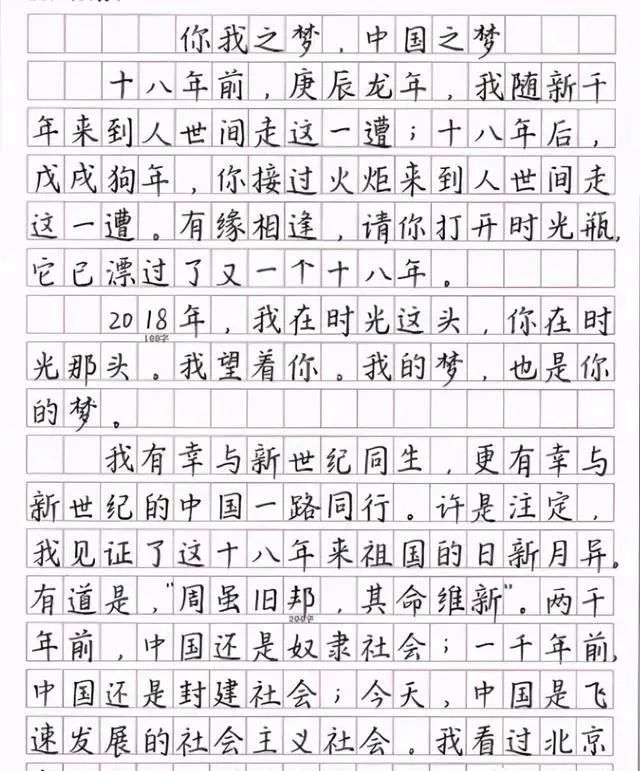 你我之梦，中国之梦
十八年前，庚辰龙年，我随新千
年来到人世间走这一遭；十八年后，
戊戌狗年，你接过火炬来到人世间走
这一遭。有缘相逢，请你打开时光瓶，
它已漂过了又一个十八年。
2018年，我在时光这头，你在时
100字
光那头。我望着你。我的梦，也是你
的梦。
我有幸与新世纪同生，更有幸与
新世纪的中国一路同行。许是注定，
我见证了这十八年来祖国的日新月异。
有道是，“周虽旧邦，其命维新”。两千
200字
年前，中国还是奴隶社会；一千年前，
中国还是封建社会；今天，中国是飞
速发展的社会主义社会。我看过北京